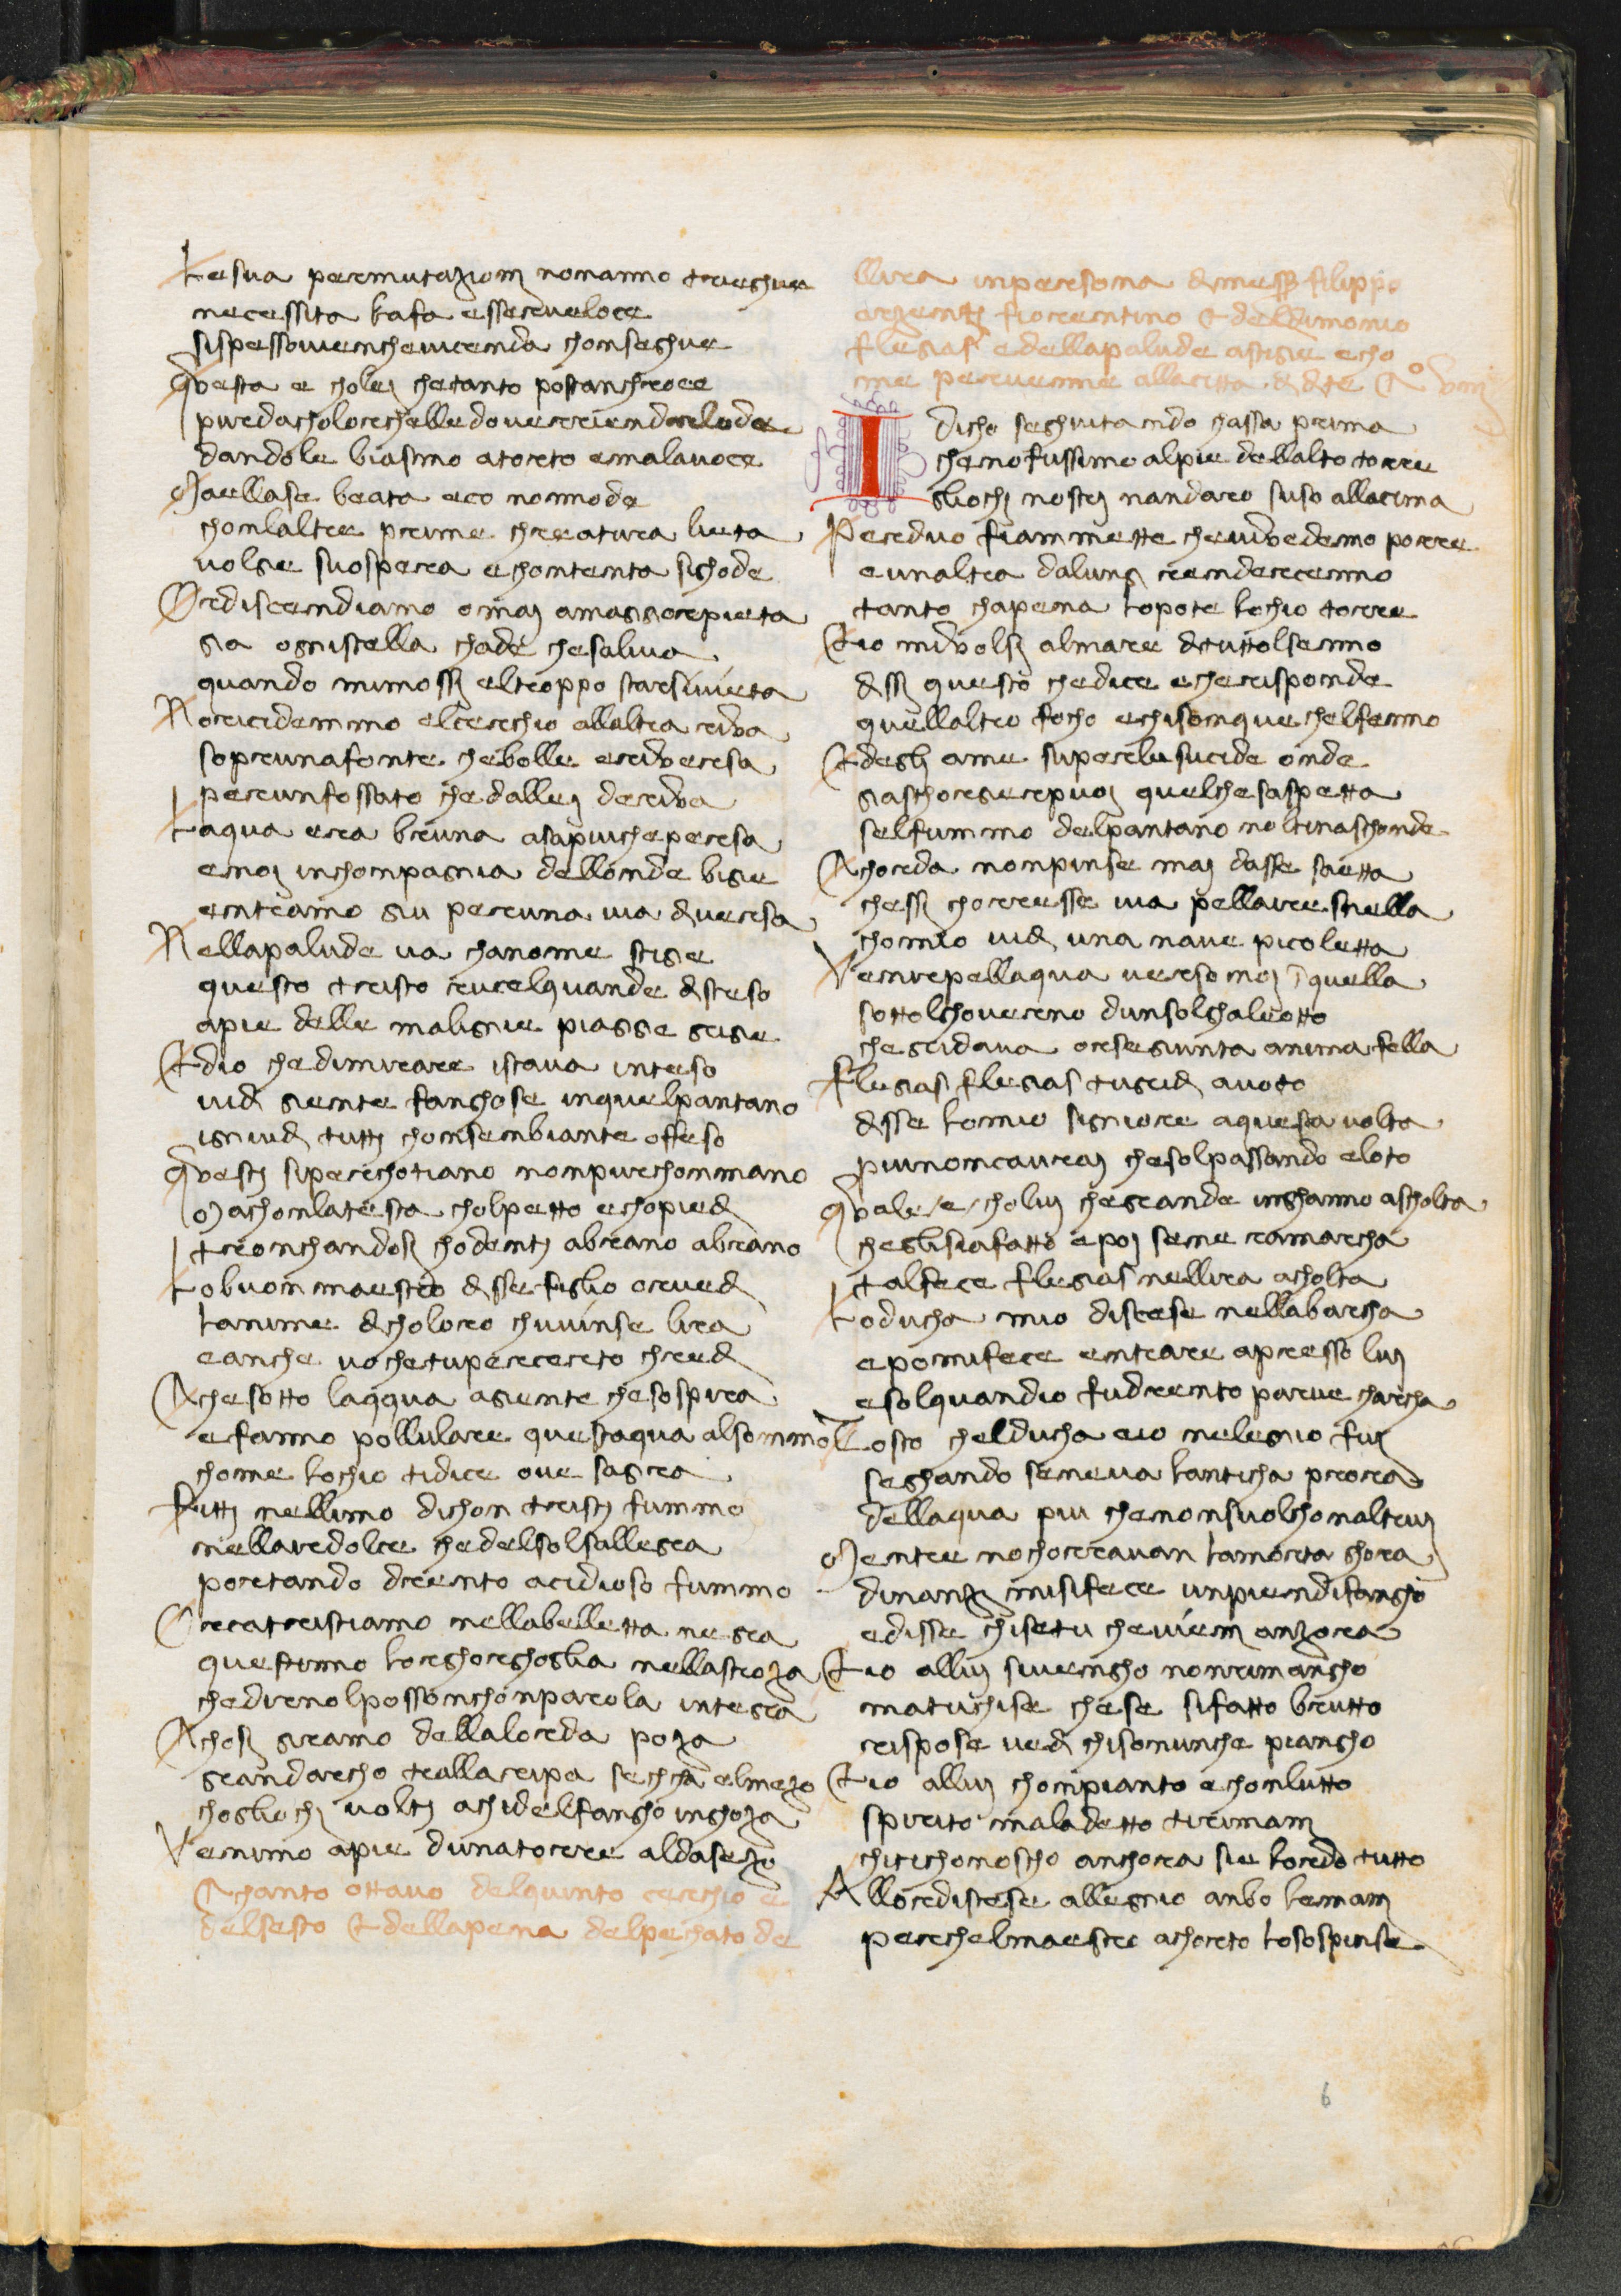 Le sua permutazioni nonanno trieghue
necessita lafa esserveloce
sispessovienchevicenda chonseghue
Questa e cholei chetanto postanchroce
puredacholorchelledoverriendarelode
dandole biasmo atorto emalavoce
Maellase beata eco nonnode
chonlaltre prime chreatura lieta
volge suospera echontenta sighode
Ordiscendiamo omai amaggorpieta
gia ognistella chade chesaliva
quando mimossi eltroppo starsivieta
Noricidemmo elcerchio allaltra riva
sopreunafonte chebolle eriversa
perunfossato chedallei deriva
Laqua era bruna asapiuchepersa
enoi inchompagnia dellonde bige
entramo giu peruna via diversa
Nellapalude va chanome stige
questo tristo ruscelquande disceso
apie delle maligne piagge grige
Edio chedimirare istava inteso
vidi giente fanghose inquelpantano
ignudi tutti chonsembiante offeso
Questi siperchotiano nonpurechonmano
Machonlatesta cholpetto echopiedi
tronchandosi chodenti abrano abrano
Lobuon maestro disse figlio orvedi
lanime dicholoro chuivinse lira
eanche vochetupercerto chredi
Chesotto laqqua agiente chesospira
efanno pollulare questaqua alsommo
chome lochio tidice ove sagira
Fitti nellimo dichon tristi fummo
nellaredolce chedelsolsallegra
portando drento acidioso fummo
Orcatristiamo nellabelletta negra
questinno lorghorghoglia nellastroza
chedirenolpossonchonparola integra
Chosi giramo dellalorda poza
grandarcho trallaripa secha elmezo
chogliochi volti achidelfangho inghoza
Venimo apie dunatorre aldasezo
Chanto ottavo delquinto cerchio e
delsesto E dellapena delpechato de
llira inpersona dimesser filippo
argenti fiorentino E deldimonio
flegias edellapalude astigie echo
me pervenne allacitta di dite Co viii
I dicho seghuitando chassa prima
chenofussimo alpie dellalto torre
gliochi nostri nandaro suso allacima
Perduo fiammette chevivedemo porre
eunaltra dalungi rendercenno
tanto chapena lopote lochio torre
Eio mivolsi almare dituttolsenno
dissi questo chedice echerisponde
quellaltro focho echisonque chelfenno
Edegli ame superlesucide onde
giaschorgerepuoi quelchesaspetta
selfummo delpantano noltinaschonde
Chorda nonpinse mai dasse saetta
chessi chorresse via pellare snella
chomio vidi una nave picoletta
Venirepellaqua versonoi i quella
sottolghoverno dunsolghaleotto
chegridava orsegiunta anima fella
flegias flegias tugridi avoto
disse lomio signiore aquesta volta
piunoncavrai chesolpassando eloto
Quale e cholui chegrande inghanno ascholta
cheglisiafatto epoi sene ramarcha
talfece flegias nellira acholta
Loducha mio discese nellabarcha
epomifece entrare apresso lui
esolquandio fudrento parve charcha
Tosto chelducha eio nelegnio fui
seghando seneva lanticha prora
dellaqua piu chenonsuolchonaltrui
Mentre nochorravan lamorta ghora
dinanzi misifece unpiendifangho
edisse chisetu chevieni anzora
Eio allui sivengho nonrimangho
matuchise chese sifatto brutto
rispose vedi chisonunche piangho
Eio allui chonpianto echonlutto
spirito maladetto tirimani
chitichonoscho anchora sie lordo tutto
Allordistese allegnio anbo lemani
perchelmaestro achorto lososspinse
6